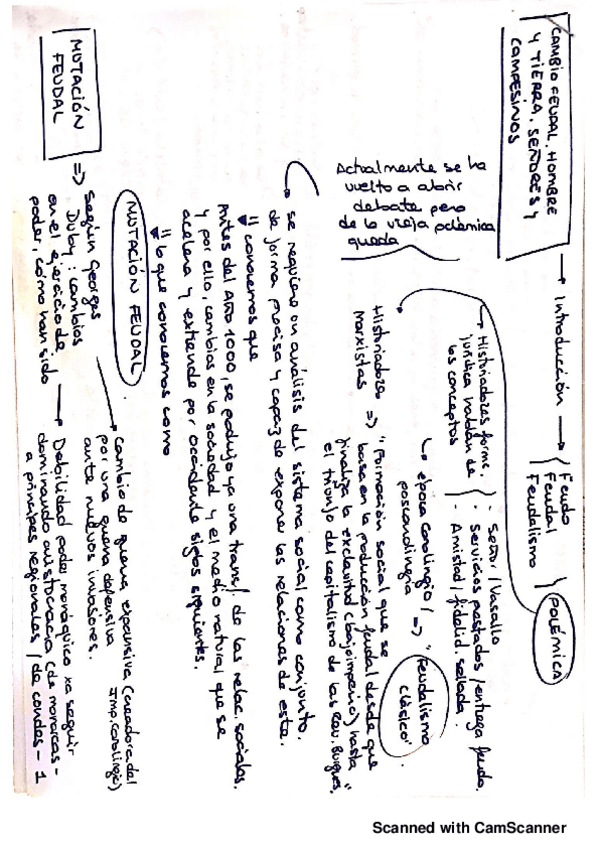 CAMBIO FEUDAL. HOMBRE
Y TIERRA. SEÑORES Y
CAMPESINOS
→ Introducción →
Feudo
Feudal
Feudalismo
POLÉMICA
→ Historiadores forma
jurídica hablan de
los conceptos
- Señor / Vasallo
- Servicios pastados / entrega feudo.
- Amistad / fidelid. sellada.
↳ época carolingia /
poscarolingia
=> "Feudalismo
clásico".
Historiadores
Marxistas
=> "Formación social que se
basa en la producción feudal desde que
finaliza la exclavitud (bajoimperio) hasta
el triunfo del capitalismo de las Rev. Burgues."
Actualmente se ha
vuelto a abrir
debate pero
de la vieja polémica
queda
se requiere un análisis del sistema social como conjunto.
de forma precisa y capaz de exponer las relaciones de este.
conocemos que
Antes del AÑO 1000, se produjo ya una transf. de las relac. sociales.
y por ello, cambios en la sociedad y el medio natural que se
acelera y extiende por occidente siglos siguientes.
lo que conocemos como
MUTACIÓN FEUDAL.
MUTACIÓN
FEUDAL
=> Según Georges
Duby: cambios
en el ejercicio de
poder, cómo han sido
→ Cambio de guerra expansiva (creadora del
Imp. Carolingio)
por una guerra defensiva
ante nuevos invasores.
→ Debilidad poder monárquico xa seguir
dominando aristocracia (de monarcas -
a príncipes regionales / de condes - 1
Scanned with CamScanner